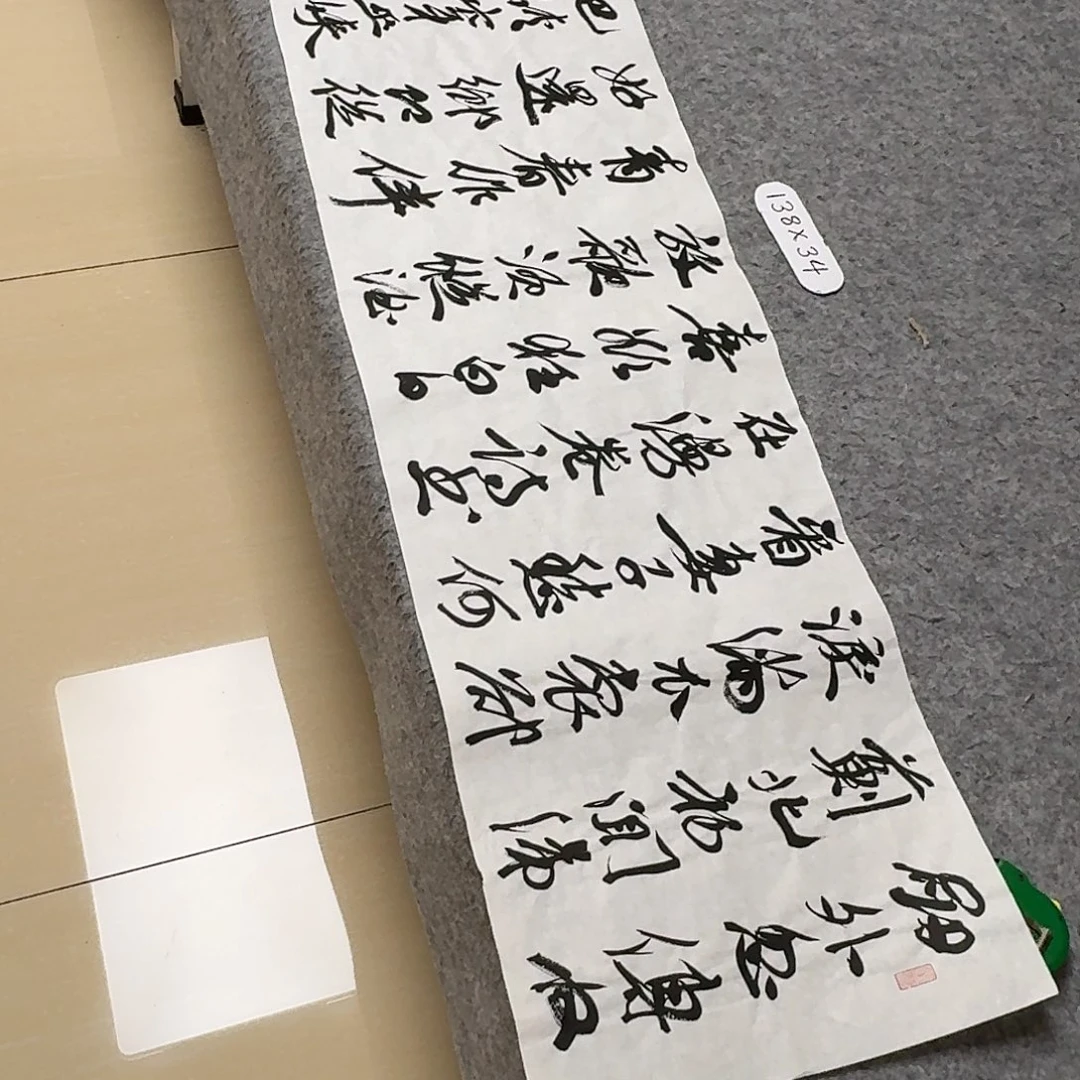 劍外忽傳收
薊北初聞涕
淚滿衣裳卻
看妻子愁何
在漫卷詩書
喜欲狂白日
放歌須縱酒
青春作伴
好還鄉即從
巴峽穿巫峽
138×34